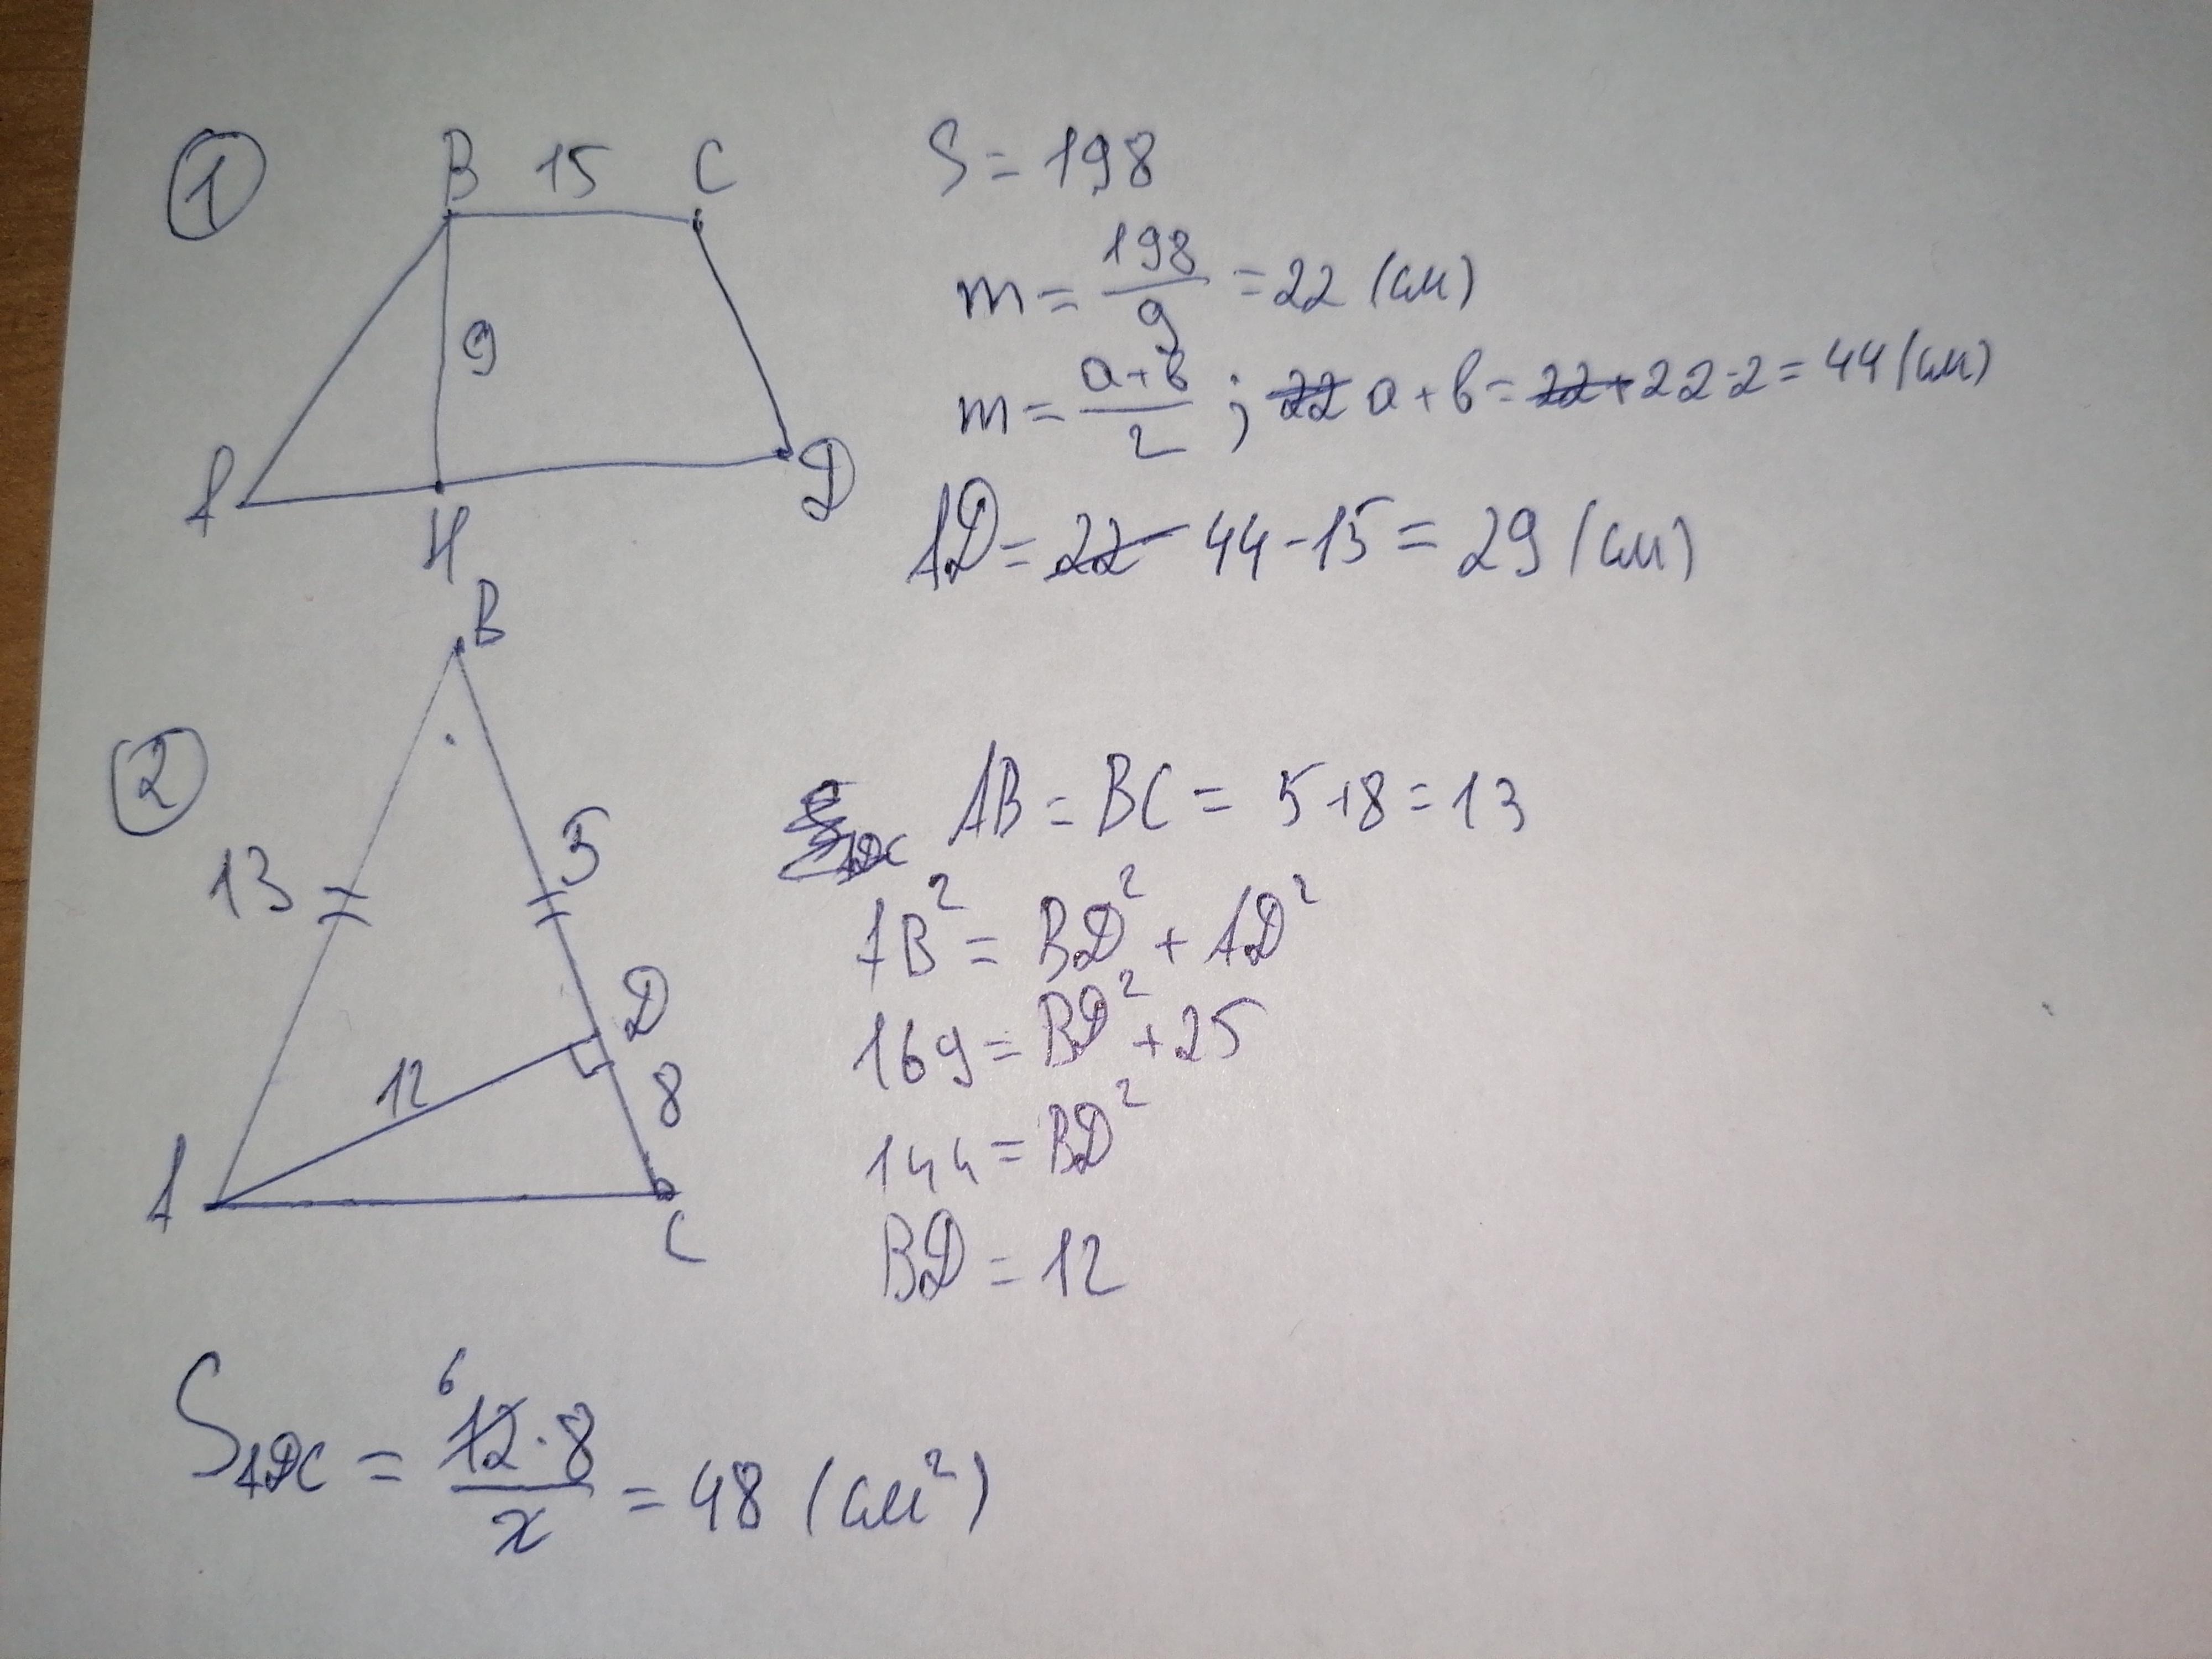 1
B 15 C
9
A H D
S = 198
m = 198/9 = 22 (см)
m = (a+b)/2 ; 22 a + b = 22 + 22·2 = 44 (см)
AD = 22 - 44 - 15 = 29 (см)
2
B
13 5
D
12 8
A C
AB = BC = 5+8 = 13
AB² = BD² + AD²
169 = BD² + 25
144 = BD²
BD = 12
6
S ADC = 12·8/2 = 48 (см²)